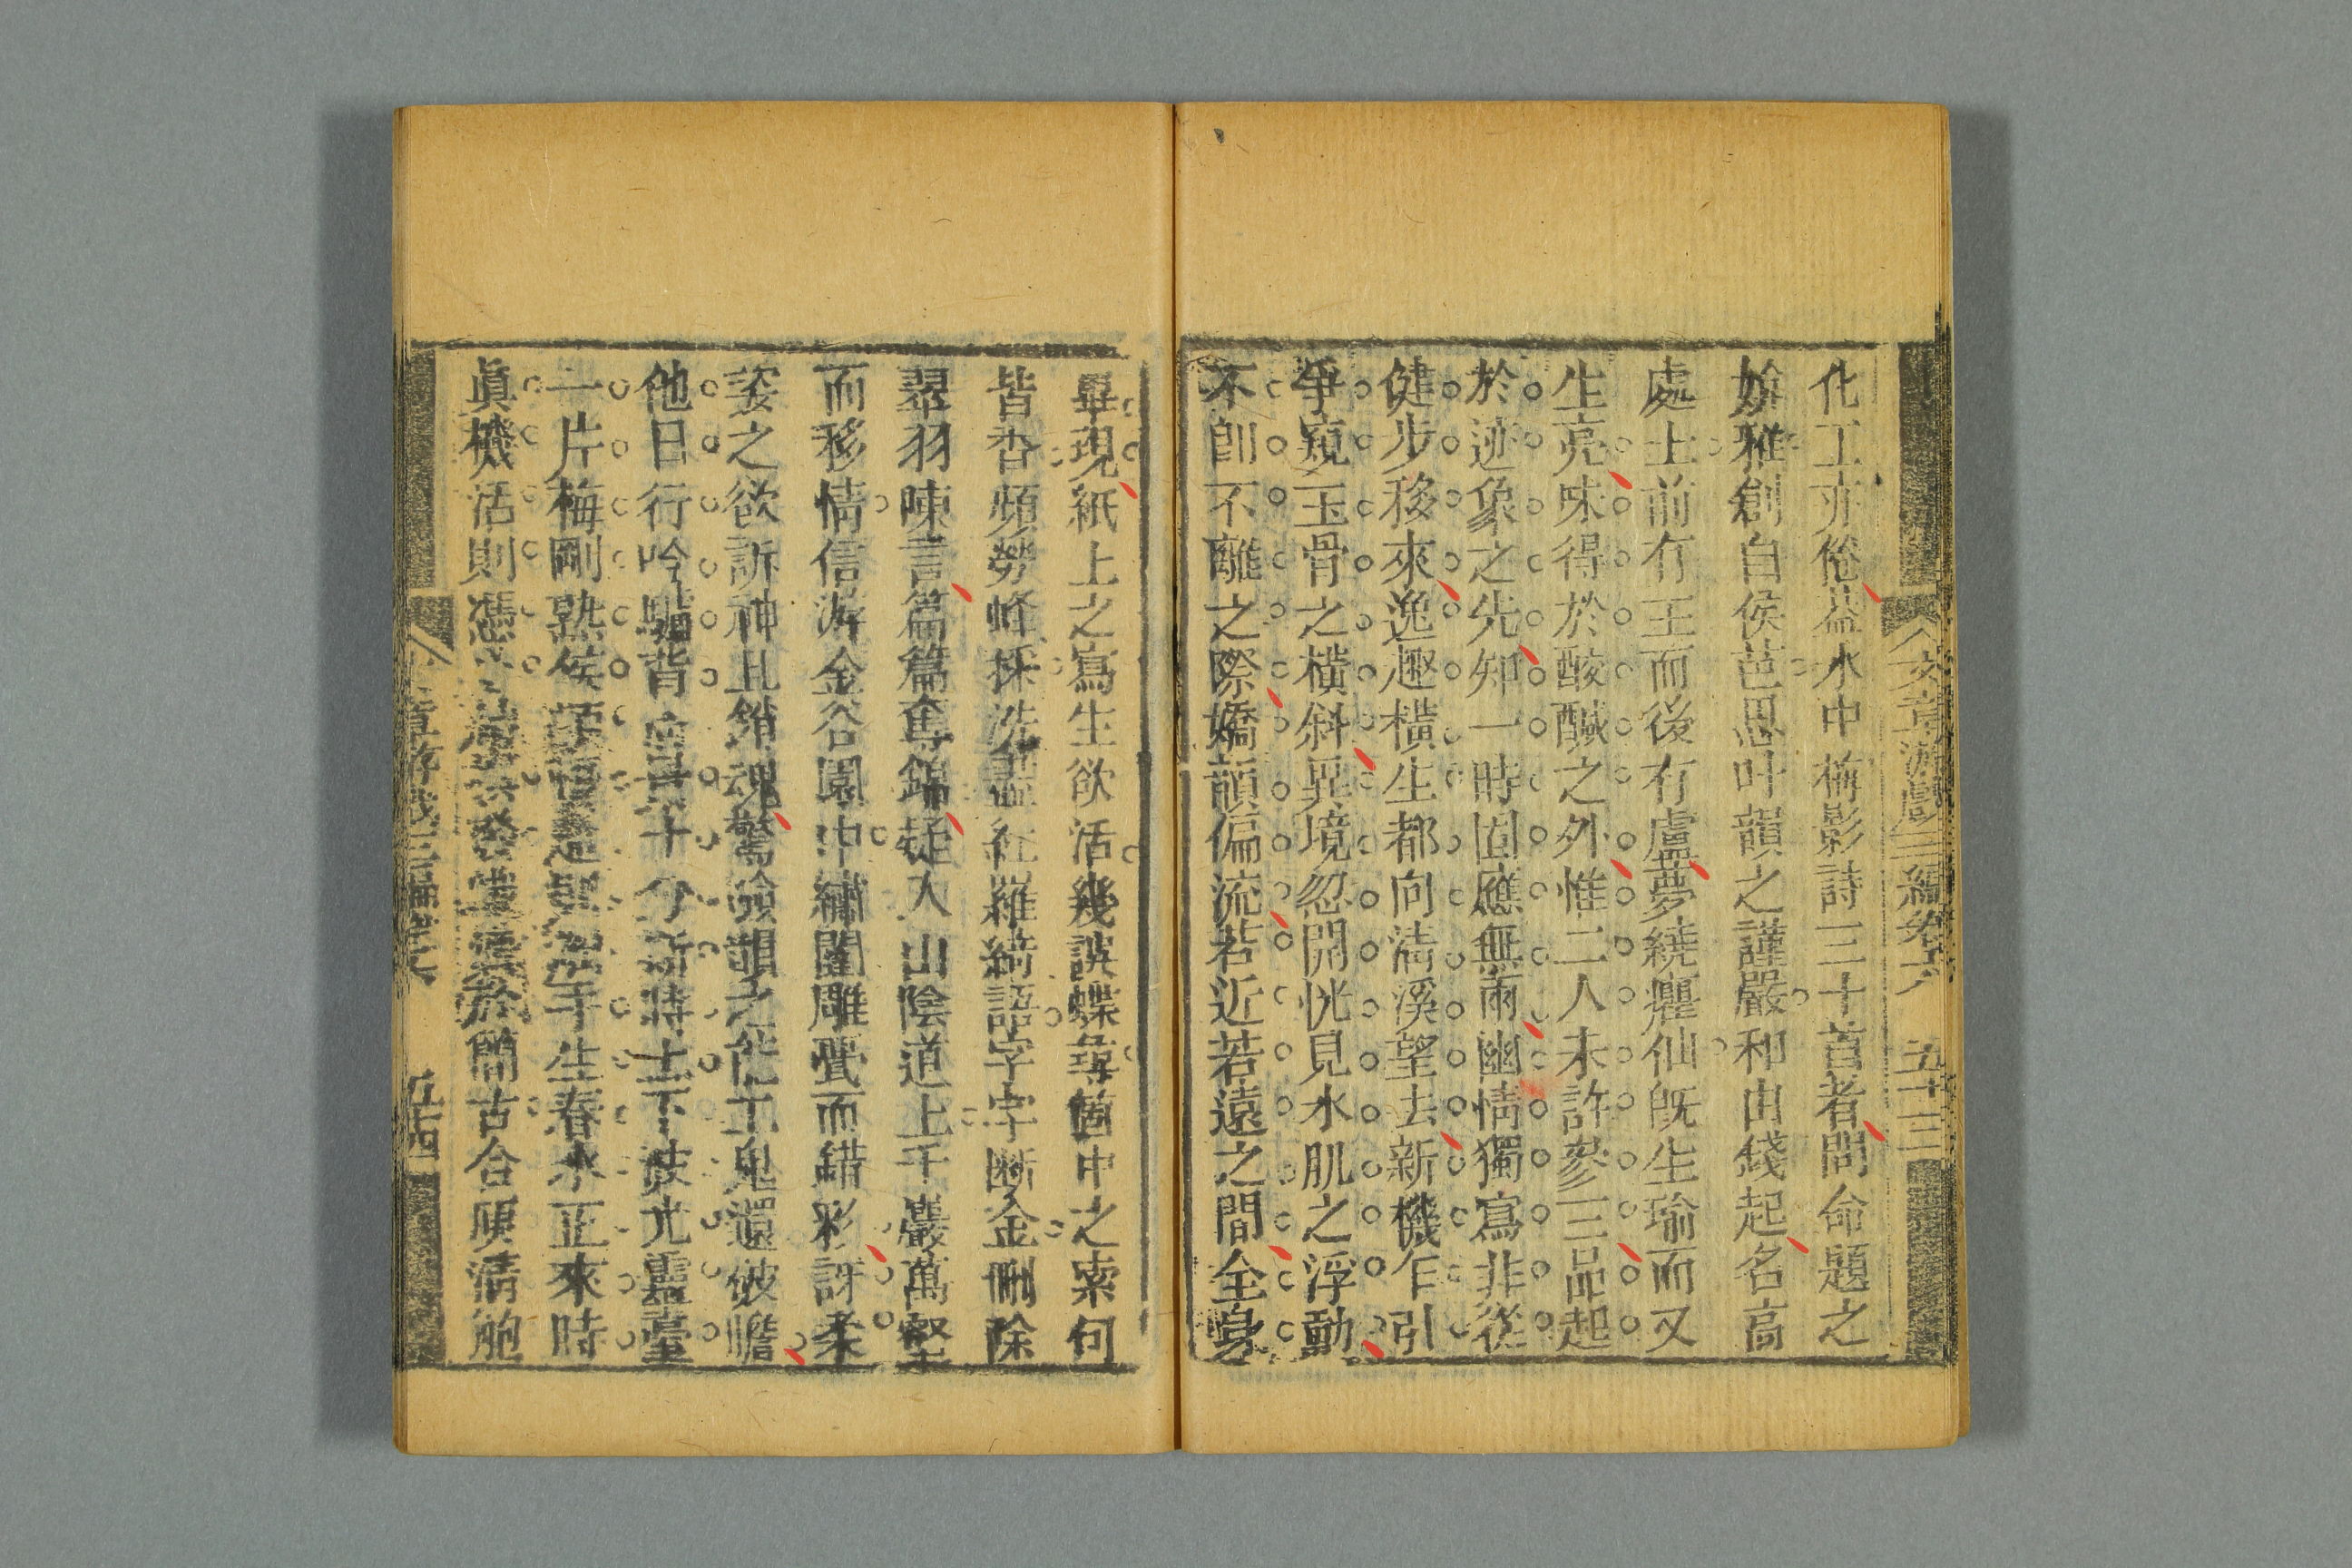 文章游戲三編卷六 五十三
化工亦俗葢水中梅影詩三十首者問命題之
妍雅創自侯芭思叶韻之謹嚴和由錢起名高
處士前有王而後有盧夢繞癯仙既生瑜而又
生亮味得於酸醎之外惟二人未許參三品起
於迹象之先知一時固應無兩幽情獨寫非從
健步移來逸趣橫生都向清溪望去新機乍引
爭窺玉骨之橫斜異境忽開恍見水肌之浮動
不卽不離之際嬌韻偏流若近若遠之間全身
畢現紙上之寫生欲活幾誤蝶尋箇中之索句
皆香頻勞蜂採洗盡紅羅綺語字字斷金刪除
翠羽陳言篇篇奪錦疑入山陰道上千巖萬壑
而移情信游金谷園中繡闥雕甍而錯彩訝柔
姿之欲訴神且銷魂驚險韻之能工鬼還破膽
他日行吟驢背 十分新詩士下波尤靈臺
一片梅剛熟候 手生春水正來時
眞機活則憑 簡古合庾清鮑
章游戲三編卷六 五十四